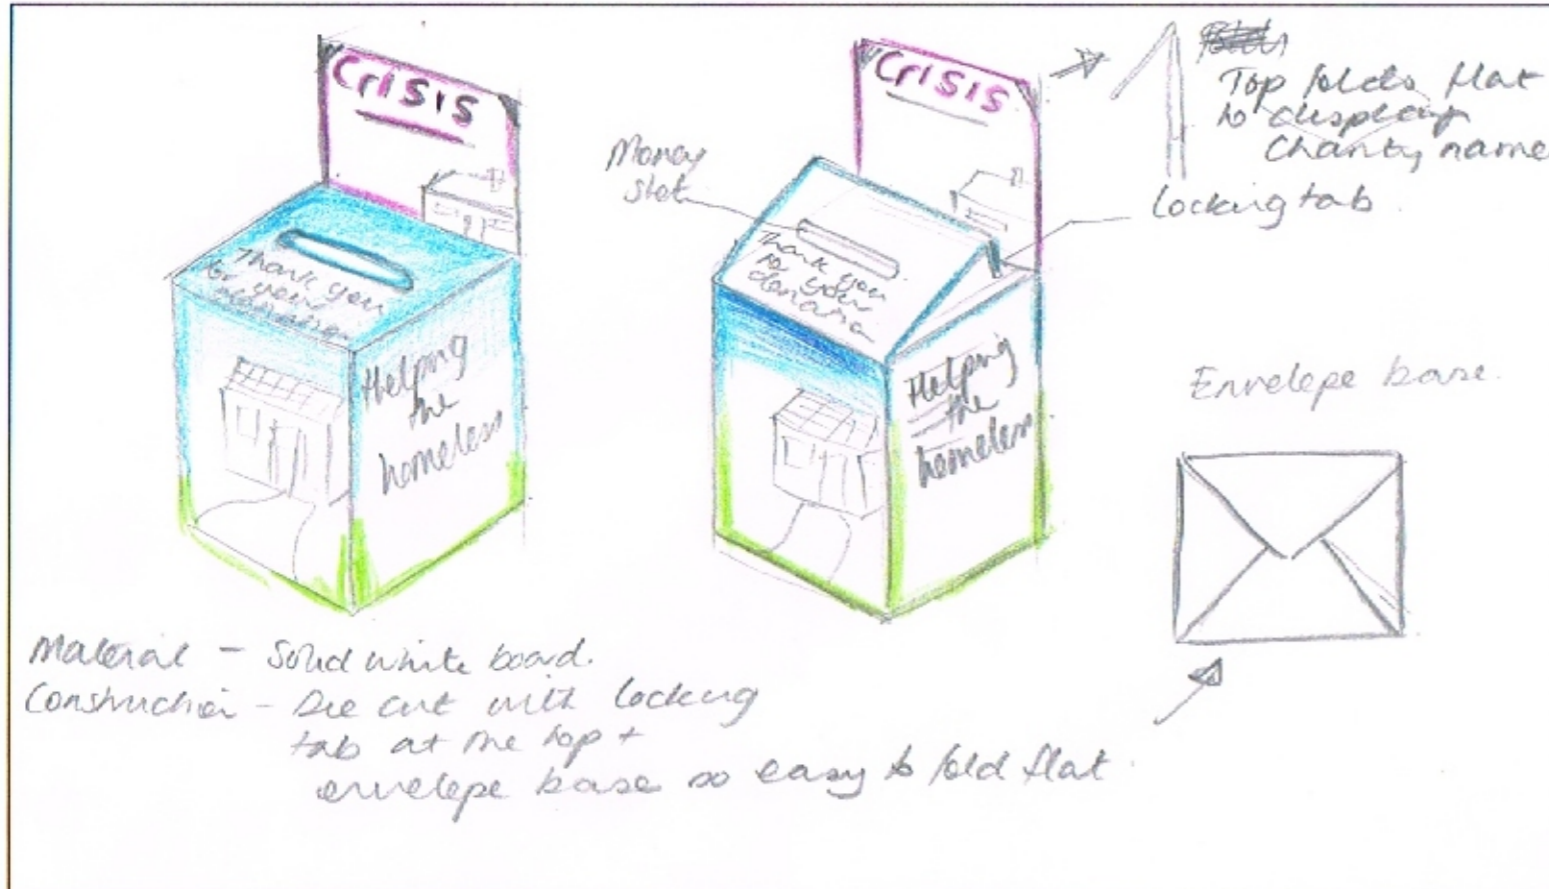 Crisis
Thank you
for your
donation
Helping
the
homeless
Money
slot
Crisis
Thank you
for your
donation
Helping
the
homeless
Top folds flat
to display
Charity name
locking tab
Envelope base.
Material - Solid white board.
Construction - Die cut with locking
tab at the top +
envelope base so easy to fold flat.